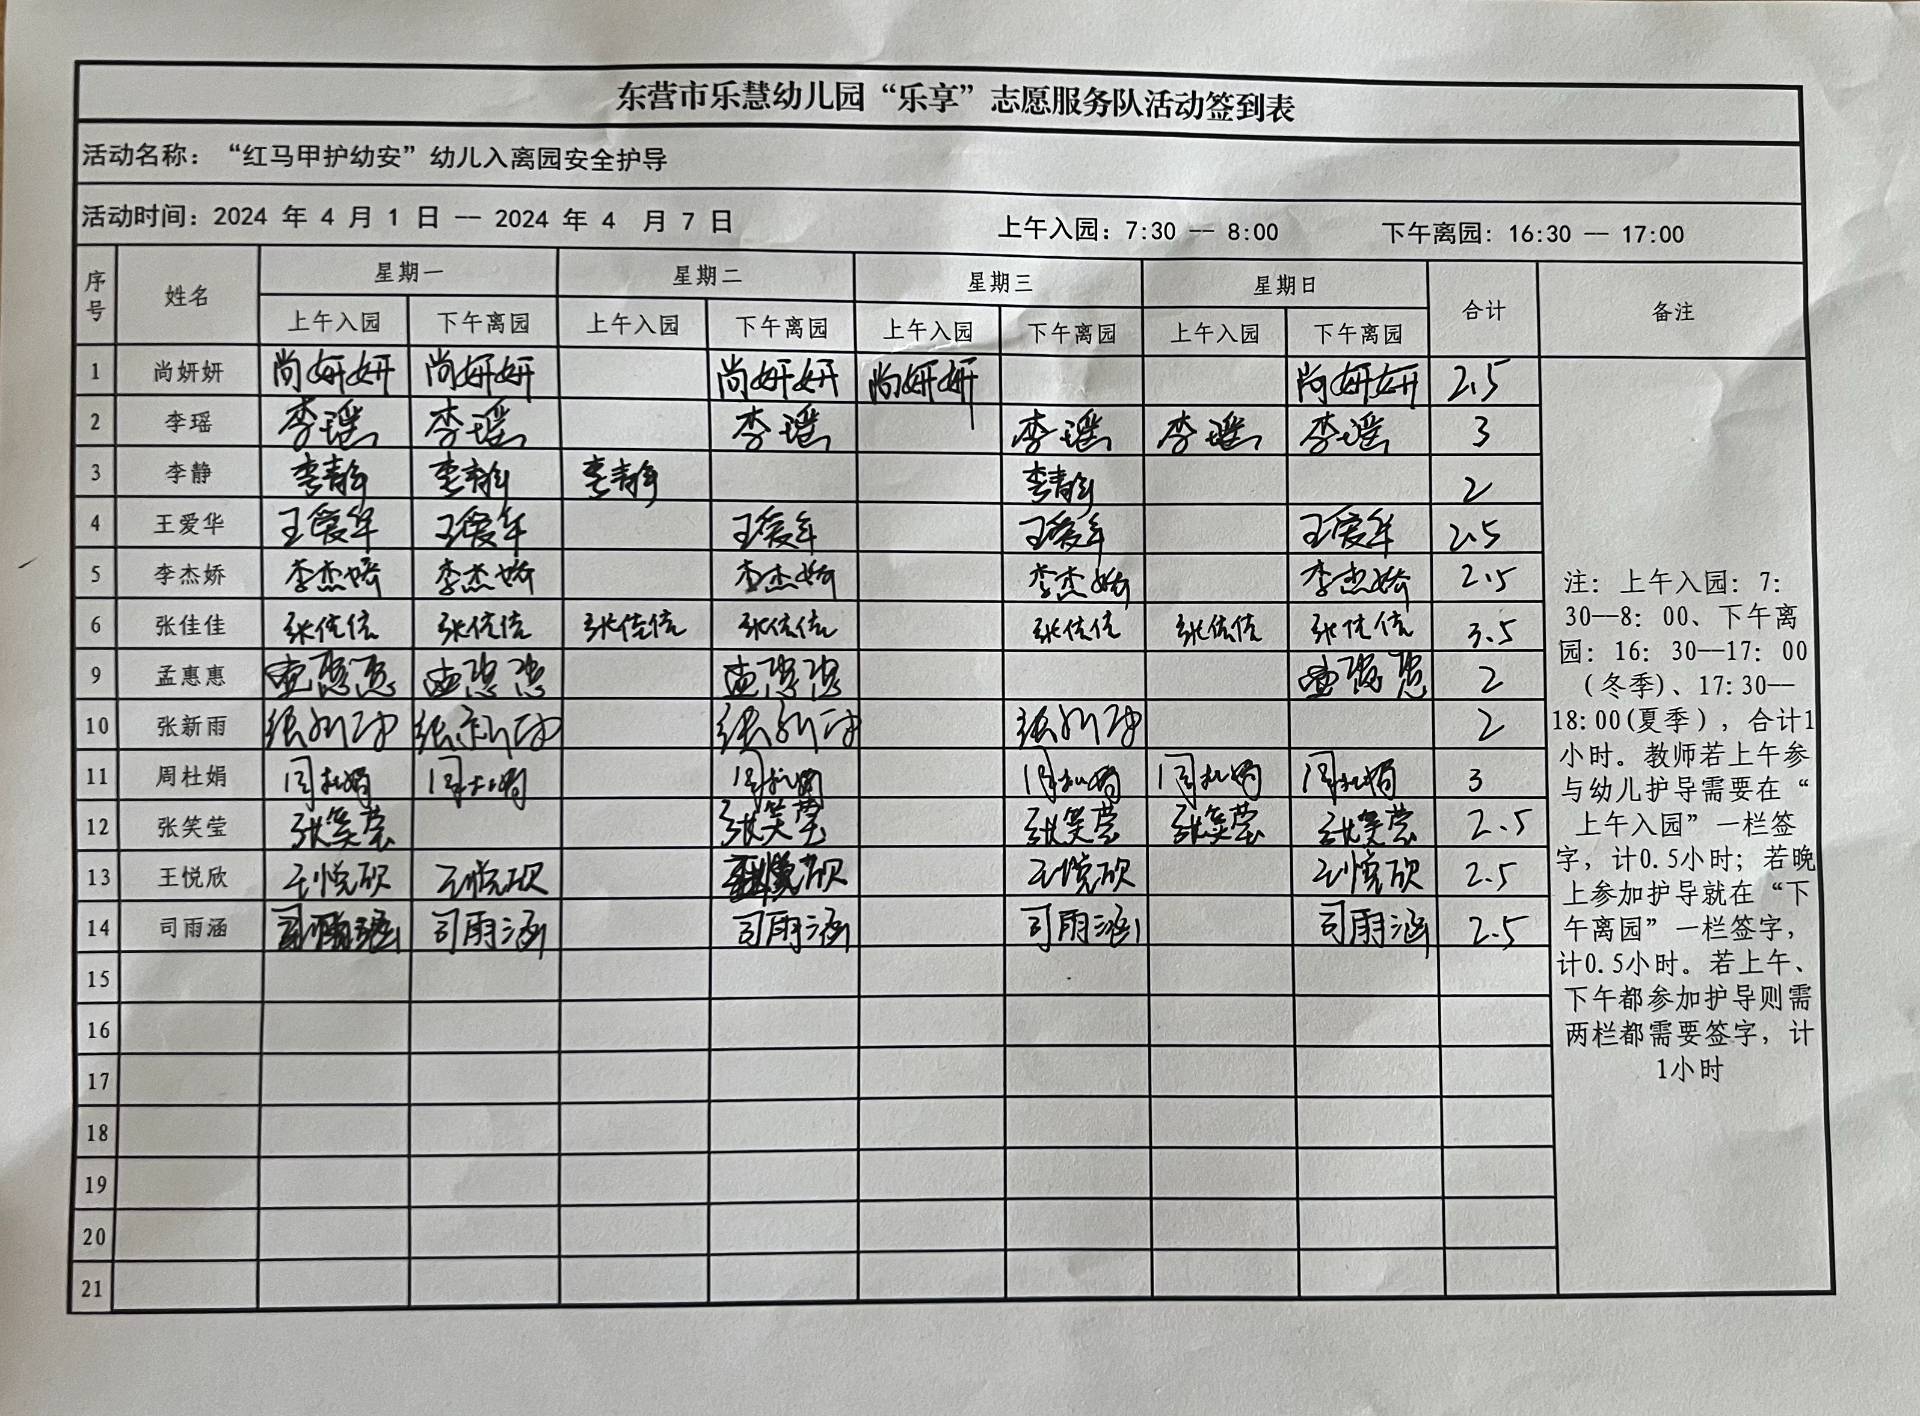 东营市乐慧幼儿园“乐享”志愿服务队活动签到表
活动名称：“红马甲护幼安”幼儿入离园安全护导
活动时间：2024 年 4 月 1 日 -- 2024 年 4 月 7 日 上午入园：7:30 -- 8:00 下午离园：16:30 -- 17:00
序号 姓名 星期一 星期二 星期三 星期日 合计 备注
上午入园 下午离园 上午入园 下午离园 上午入园 下午离园 上午入园 下午离园
1 尚妍妍 尚妍妍 尚妍妍 尚妍妍 尚妍妍 尚妍妍 2.5
2 李瑶 李瑶 李瑶 李瑶 李瑶 李瑶 李瑶 3
3 李静 李静 李静 李静 李静 2
4 王爱华 王爱华 王爱华 王爱华 王爱华 王爱华 2.5
5 李杰娇 李杰娇 李杰娇 李杰娇 李杰娇 李杰娇 2.5
6 张佳佳 张佳佳 张佳佳 张佳佳 张佳佳 张佳佳 张佳佳 张佳佳 3.5
9 孟惠惠 孟惠惠 孟惠惠 孟惠惠 孟惠惠 2
10 张新雨 张新雨 张新雨 张新雨 张新雨 2
11 周杜娟 周杜娟 周杜娟 周杜娟 周杜娟 周杜娟 周杜娟 3
12 张笑莹 张笑莹 张笑莹 张笑莹 张笑莹 张笑莹 2.5
13 王悦欣 王悦欣 王悦欣 王悦欣 王悦欣 王悦欣 2.5
14 司雨涵 司雨涵 司雨涵 司雨涵 司雨涵 司雨涵 2.5
15
16
17
18
19
20
21
注：上午入园：7：
30--8：00、下午离
园：16：30--17：00
（冬季）、17:30--
18:00(夏季），合计1
小时。教师若上午参
与幼儿护导需要在“
上午入园”一栏签
字，计0.5小时；若晚
上参加护导就在“下
午离园”一栏签字，
计0.5小时。若上午、
下午都参加护导则需
两栏都需要签字，计
1小时